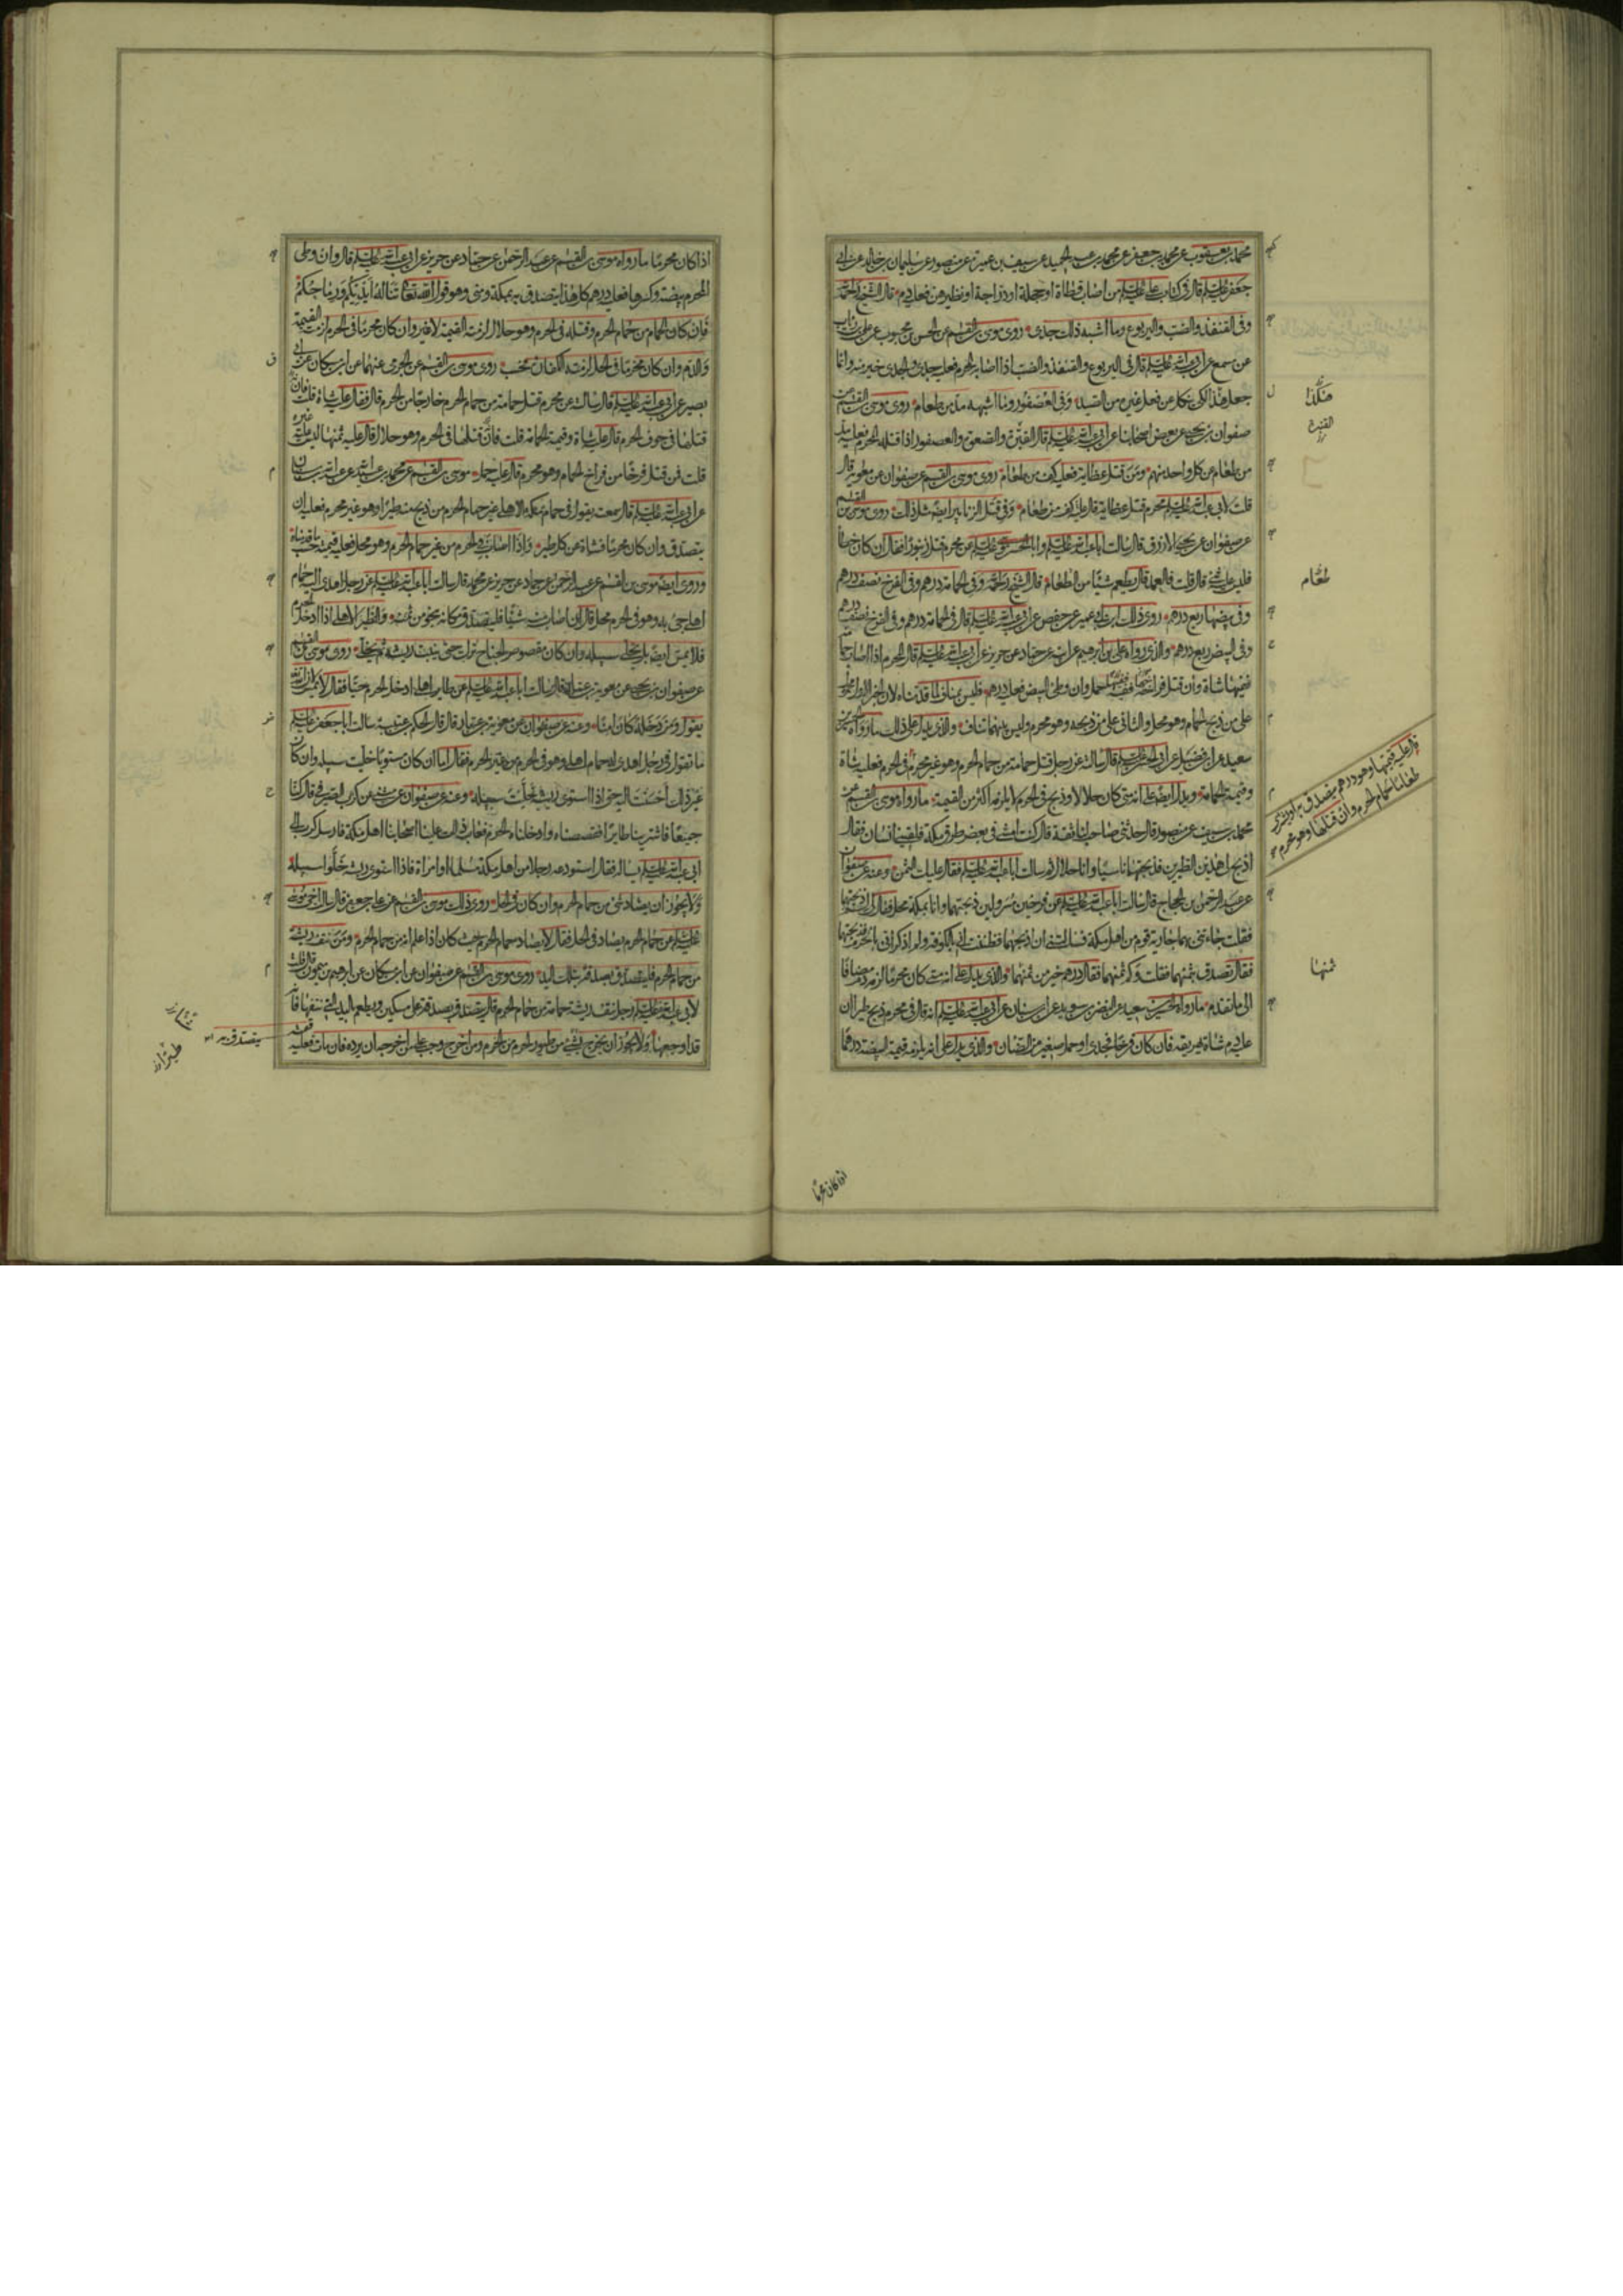 محمد بن يعقوب عن محمد بن جعفر عن محمد بن عبد الحميد عن سيف بن عميرة عن منصور عن سليمان بن خالد عن ابي
جعفر عليه السلم قال في كتاب علي عليه السلم من اصاب قطاة او حجلة او دراجة او نظيرهن فعليه دم قال الشيخ رحمه الله
وفي القنفذ والضب واليربوع وما اشبه ذلك جدي روى موسى بن القسم عن الحسن بن محبوب عن علي بن رئاب
عن مسمع عن ابي عبد الله عليه السلم قال في اليربوع والقنفذ والضب اذا اصابه المحرم فعليه جدي والجدي خير منه وانما
جعل هذا لكي ينكل عن فعل غيره من الصيد وفي العصفور وما اشبهه مد من طعام روى موسى بن القسم عن
صفوان بن يحيى عن بعض اصحابنا عن ابي عبد الله عليه السلم قال القنبرة والصعوة والعصفور اذا قتله المحرم فعليه مد
من طعام عن كل واحد منهم ومن قتل عظاية فعليه كف من طعام روى موسى بن القسم عن صفوان عن معوية قال
قلت لابي عبد الله عليه السلم محرم قتل عظاية قال عليه كف من طعام وفي قتل الزنابير ايضا مثل ذلك روى موسى بن القسم
عن صفوان عن يحيى الازرق قال سالت ابا عبد الله عليه السلم وابا الحسن موسى عليه السلم عن محرم قتل زنبورا فقال ان كان خطأ
فليس عليه شئ قال قلت فالعمد قال يطعم شيئا من الطعام قال الشيخ رحمه الله وفي الحمامة درهم وفي الفرخ نصف درهم
وفي بيضها ربع درهم روى ذلك ابن ابي عمير عن حفص عن ابي عبد الله عليه السلم قال في الحمامة درهم وفي الفرخ نصف درهم
وفي البيض ربع درهم والذي رواه علي بن ابرهيم عن ابيه عن حماد عن حريز عن ابي عبد الله عليه السلم قال المحرم اذا اصاب حمامة
ففيها شاة وان قتل فراخه ففيه حمل وان وطئ البيض فعليه درهم فليس بمناف لما قدمناه لان الخبر الاول محمول
على من ذبح الحمام وهو محل والثاني على من ذبحه وهو محرم وليس بينهما تناف والذي يدل على ذلك ما رواه الحسين بن
سعيد عن ابن فضيل عن ابي الحسن عليه السلم قال سالته عن رجل قتل حمامة من حمام الحرم وهو غير محرم في الحرم فعليه شاة
وقيمة الحمامة ويدل ايضا على انه متى كان حلالا وذبح في الحرم لا يلزمه اكثر من القيمة ما رواه موسى بن القسم عن
محمد بن سيف عن منصور قال حدثني صاحب لنا ثقة قال كنت امشي في بعض طرق مكة فلقيني انسان فقال
اذبح لي هذين الطيرين فذبحتهما ناسيا وانا حلال ثم سالت ابا عبد الله عليه السلم فقال عليك الثمن وعنه عن صفوان
عن عبد الرحمن بن الحجاج قال سالت ابا عبد الله عليه السلم عن فرخين مسرولين ذبحتهما وانا بمكة محل فقال لي لم ذبحتهما
فقلت جاءتني بهما جارية قوم من اهل مكة فسالتني ان اذبحهما فظننت اني بالكوفة ولم اذكر اني بالحرم فذبحتهما
فقال تصدق بثمنهما فقلت وكم ثمنهما فقال درهم خير من ثمنهما والذي يدل على انه متى كان محرما لزمه دم مضافا
الى ما تقدم ما رواه الحسين بن سعيد عن النضر بن سويد عن ابن سنان عن ابي عبد الله عليه السلم انه قال في محرم ذبح طيرا ان
عليه دم شاة يهريقه فان كان فرخا فجدي او حمل صغير من الضأن والذي يدل على انه يلزمه قيمة البيضة درهما
هكذا
القنبرة
طعام
قال عليه قيمتها وهو درهم يتصدق به او يشتري
طعاما لحمام الحرم وان قتلها وهو محرم
ثمنها
اذا كان محرما
اذا كان محرما ما رواه موسى بن القسم عن عبد الرحمن عن حماد عن حريز عن ابي عبد الله عليه السلم قال وان وطئ
المحرم بيضة وكسرها فعليه درهم كل هذا يتصدق به بمكة ومنى وهو قول الله تعالى تناله ايديكم ورماحكم
فان كان الحمام من حمام الحرم وقتله في الحرم وهو حلال لزمته القيمة لا غير وان كان محرما في الحرم لزمته القيمة
والدم وان كان محرما في الحل لزمته الكفارة فحسب روى موسى بن القسم عن الجرمي عنهما عن ابن مسكان عن ابي
بصير عن ابي عبد الله عليه السلم قال سالته عن محرم قتل حمامة من حمام الحرم خارجا من الحرم قال فقال عليه شاة قلت فان
قتلها في جوف الحرم قال عليه شاة وقيمة الحمامة قلت فانه قتلها في الحرم وهو حلال قال عليه ثمنها ليس عليه غيره
قلت فمن قتل فرخا من فراخ الحمام وهو محرم قال عليه حمل موسى بن القسم عن محمد بن عبد الله عن عبد الله بن سنان
عن ابي عبد الله عليه السلم قال سمعته يقول في حمام مكة الاهلي غير حمام الحرم من ذبح منه طيرا وهو غير محرم فعليه ان
يتصدق وان كان محرما فشاة عن كل طير واذا اصاب في الحرم من غير حمام الحرم وهو محل فعليه قيمته حسب ما قدمناه
وروى ايضا موسى بن القسم عن عبد الرحمن عن حماد عن حريز عن محمد قال سالت ابا عبد الله عليه السلم عن رجل اهدي اليه حمام
اهلي جئ به وهو في الحرم محل قال ان اصاب منه شيئا فليتصدق مكانه بنحو من ثمنه والطير الاهلي اذا ادخل الحرم
فلا يمس ايضا بل يخلى سبيله وان كان مقصوص الجناح ترك حتى ينبت ريشه ثم يخلى روى موسى بن القسم
عن صفوان بن يحيى عن معوية بن عمار قال سالت ابا عبد الله عليه السلم عن طاير اهلي ادخل الحرم حيا فقال لا يمس لان الله
يقول ومن دخله كان امنا وعنه عن صفوان عن معوية بن عمار قال قال الحكم بن عتيبة سالت ابا جعفر عليه السلم
ما تقول في رجل اهدي له حمام اهلي وهو في الحرم من غير الحرم فقال اما ان كان مستويا خليت سبيله وان كان
غير ذلك احسنت اليه حتى اذا استوى ريشه خليت سبيله وعنه عن صفوان عن مثنى عن كرب الصيرفي قال كنا
جميعا فاشترينا طايرا فقصصناه وادخلناه الحرم فعاب ذلك علينا اصحابنا اهل مكة فارسل كرب الى
ابي عبد الله عليه السلم يساله فقال استودعه رجلا من اهل مكة مسلما او امراة فاذا استوى ريشه خلوا سبيله
ولا يجوز ان يصاد شئ من حمام الحرم وان كان في الحل روى ذلك موسى بن القسم عن علي بن جعفر قال سالت اخي موسى
عليه السلم عن حمام الحرم يصاد في الحل فقال لا يصاد حمام الحرم حيث كان اذا علم انه من حمام الحرم ومن نتف ريشة
من حمام الحرم فليتصدق بصدقة بتلك اليد روى موسى بن القسم عن صفوان عن ابن مسكان عن ابرهيم بن ميمون قال قلت
لابي عبد الله عليه السلم رجل نتف ريشة حمامة من حمام الحرم قال يتصدق بصدقة على مسكين ويطعم باليد التي نتفها فانه
قد اوجعها ولا يجوز ان يخرج بشئ من طيور الحرم من الحرم ومن اخرج وجب عليه ان يرده فان مات فعليه
قيمته
يتصدق به
طيرا